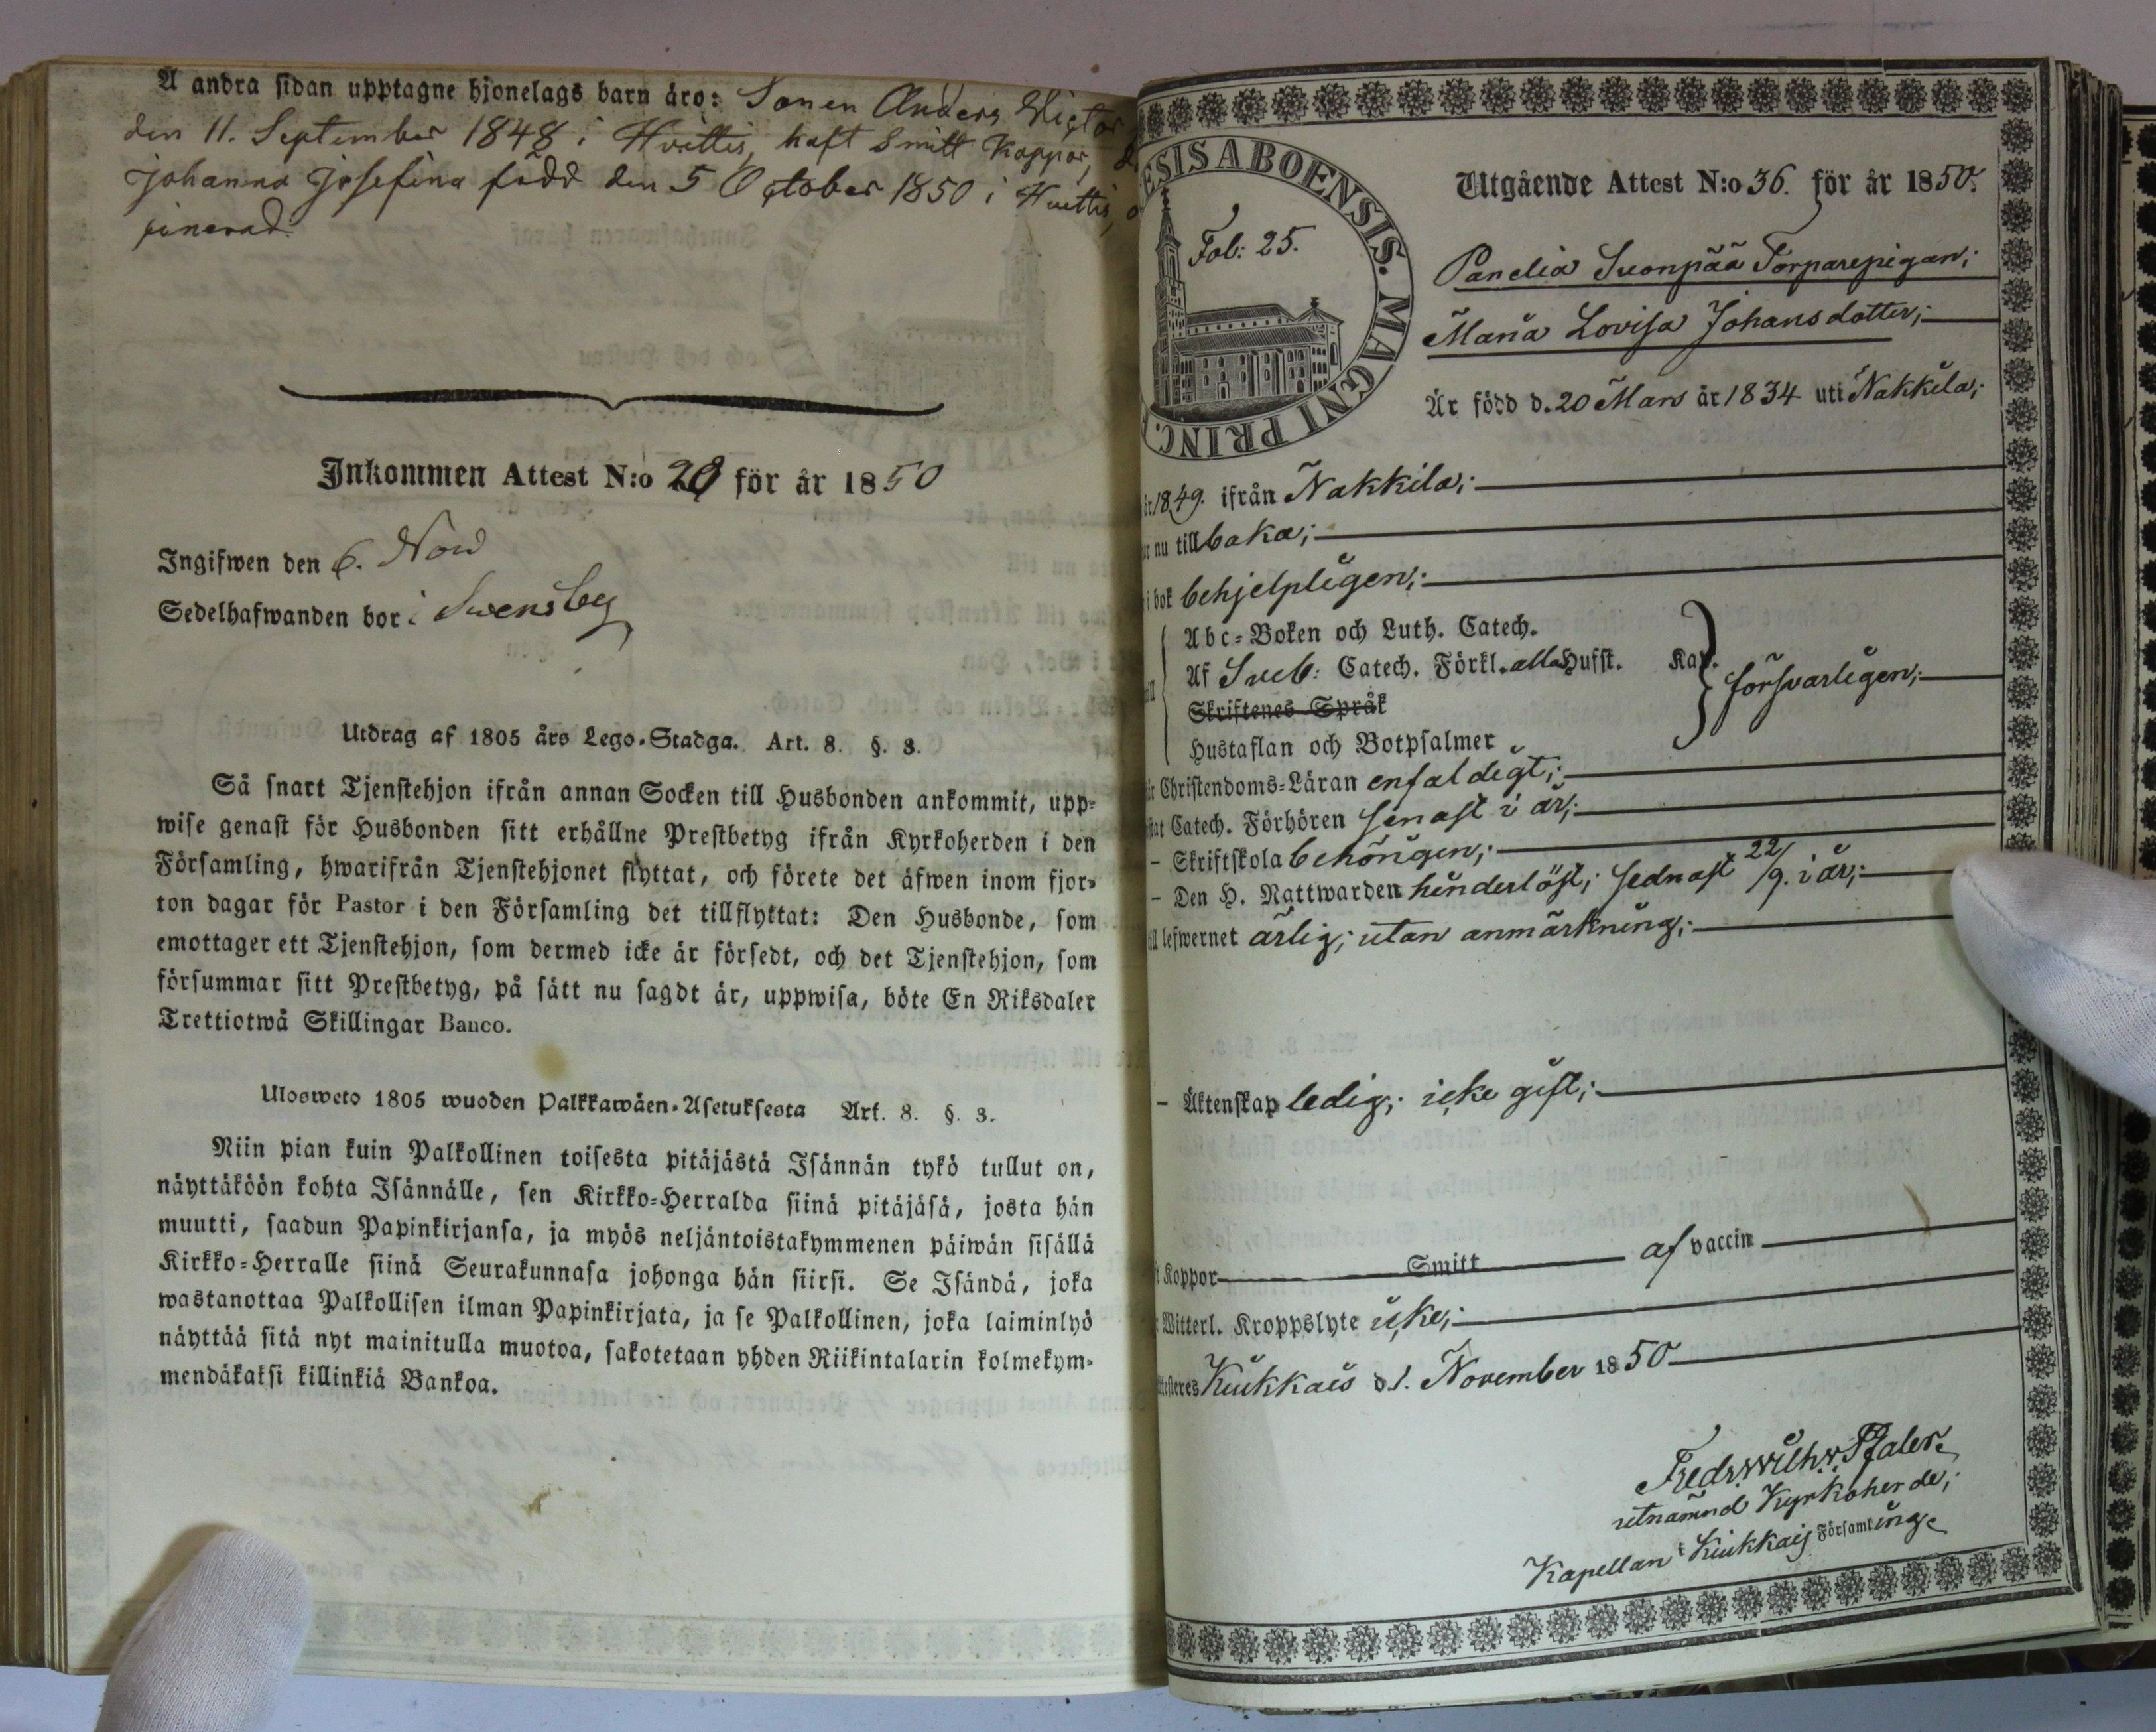 Å andra sidan upptagne hjonelags barn äro: Sonen Anders Victor
den 11. September 1848 i Hvittis, haft Smitt Koppor,
Johanna Josefina född den 5 October 1850 i Hvittis,
Inkommen Attest N:o 29 för år 1850
Ingifwen den 6. Nov
Sedelhafwanden bor i Swensby
Utdrag af 1805 års Lego-Stadga. Art. 8. §. 3.
Så snart Tjenstehjon ifrån annan Socken till Husbonden ankommit, upp-
wise genast för Husbonden sitt erhållne Prestbetyg ifrån Kyrkoherden i den
Församling, hwarifrån Tjenstehjonet flyttat, och förete det äfwen inom fjor-
ton dagar för Pastor i den Församling det tillflyttat: Den Husbonde, som
emottager ett Tjenstehjon, som dermed icke är försedt, och det Tjenstehjon, som
försummar sitt Prestbetyg, på sätt nu sagdt är, uppwisa, böte En Riksdaler
Trettiotwå Skillingar Banco.
Ulosweto 1805 wuoden Palkkawäen-Asetuksesta Art. 8. §. 3.
Niin pian kuin Palkollinen toisesta pitäjästä Isännän tykö tullut on,
näyttäköön kohta Isännälle, sen Kirkko-Herralda siinä pitäjäsä, josta hän
muutti, saadun Papinkirjansa, ja myös neljäntoistakymmenen päiwän sisällä
Kirkko-Herralle siinä Seurakunnasa johonga hän siirsi. Se Isändä, joka
wastanottaa Palkollisen ilman Papinkirjata, ja se Palkollinen, joka laiminlyö
näyttää sitä nyt mainitulla muotoa, sakotetaan yhden Riikintalarin kolmekym-
mendäkaksi killinkiä Bankoa.
ESIS ABOENSIS. MAGNI PRINC.
Fol: 25.
Utgående Attest N:o 36. för år 1850.
Panelia Suonpää Torparepigan;
Maria Lovisa Johansdotter;
Är född d. 20 Mars år 1834 uti Nakkila;
år 1849. ifrån Nakkila;
nu tillbaka;
i bok behjelpligen;
Abc-Boken och Luth. Catech.
Af Sveb: Catech. Förkl. alla Hufst. Kap.
Skriftenes Språk
Hustaflan och Botpsalmer
försvarligen;
Christendoms-Läran enfaldigt;
Catech. Förhören senast i år;
- Skriftskola behörigen;
- Den H. Nattwarden hinderlöst; sednast 22/9. i år;
lefwernet ärlig; utan anmärkning;
- Äktenskap ledig; icke gift;
Koppor Smitt af vaccin
Witterl. Kroppslyte icke;
Kiukkais d. 1. November 1850
Fredr. Wilh. v. Pfaler.
utnämnd Kyrkoherde;
Kapellan i Kiukkais Församling